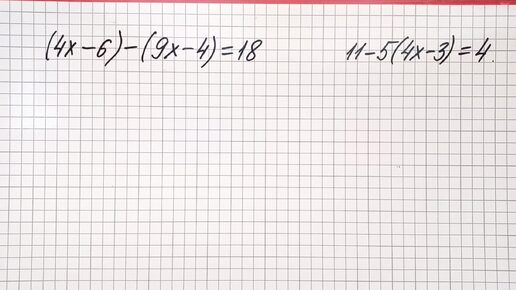 (4x-6)-(9x-4)=18 11-5(4x-3)=4.